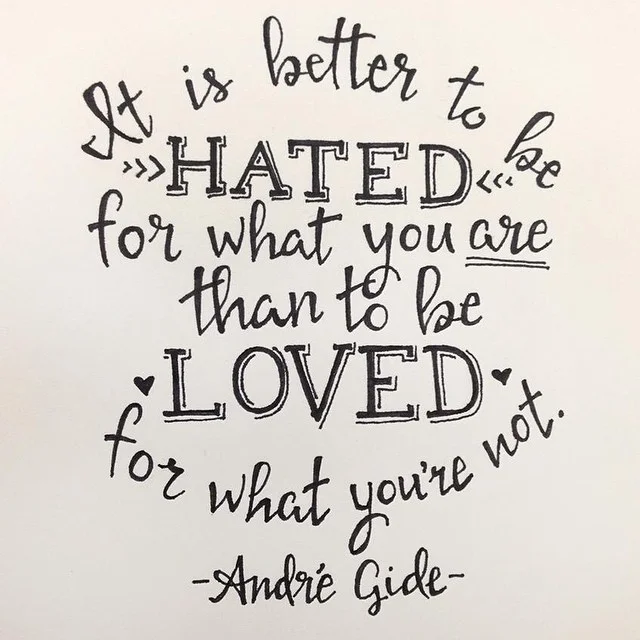 It is better to be
>>>HATED<<<
for what you are
than to be
LOVED
for what you're not.
-André Gide-